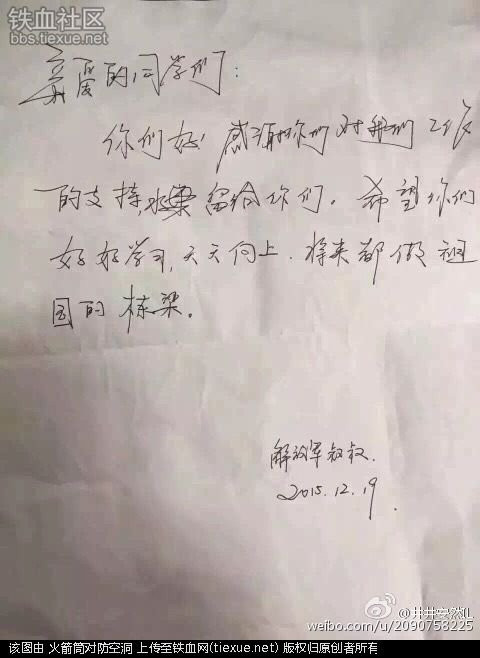 铁血社区
bbs.tiexue.net
亲爱的同学们：
你们好！感谢你们对我们工作
的支持，水果留给你们。希望你们
好好学习，天天向上，将来都做祖
国的栋梁。
解放军叔叔.
2015.12.19.
@井井安然儿
weibo.com/u/2090758225
该图由 火箭筒对防空洞 上传至铁血网(tiexue.net) 版权归原创者所有